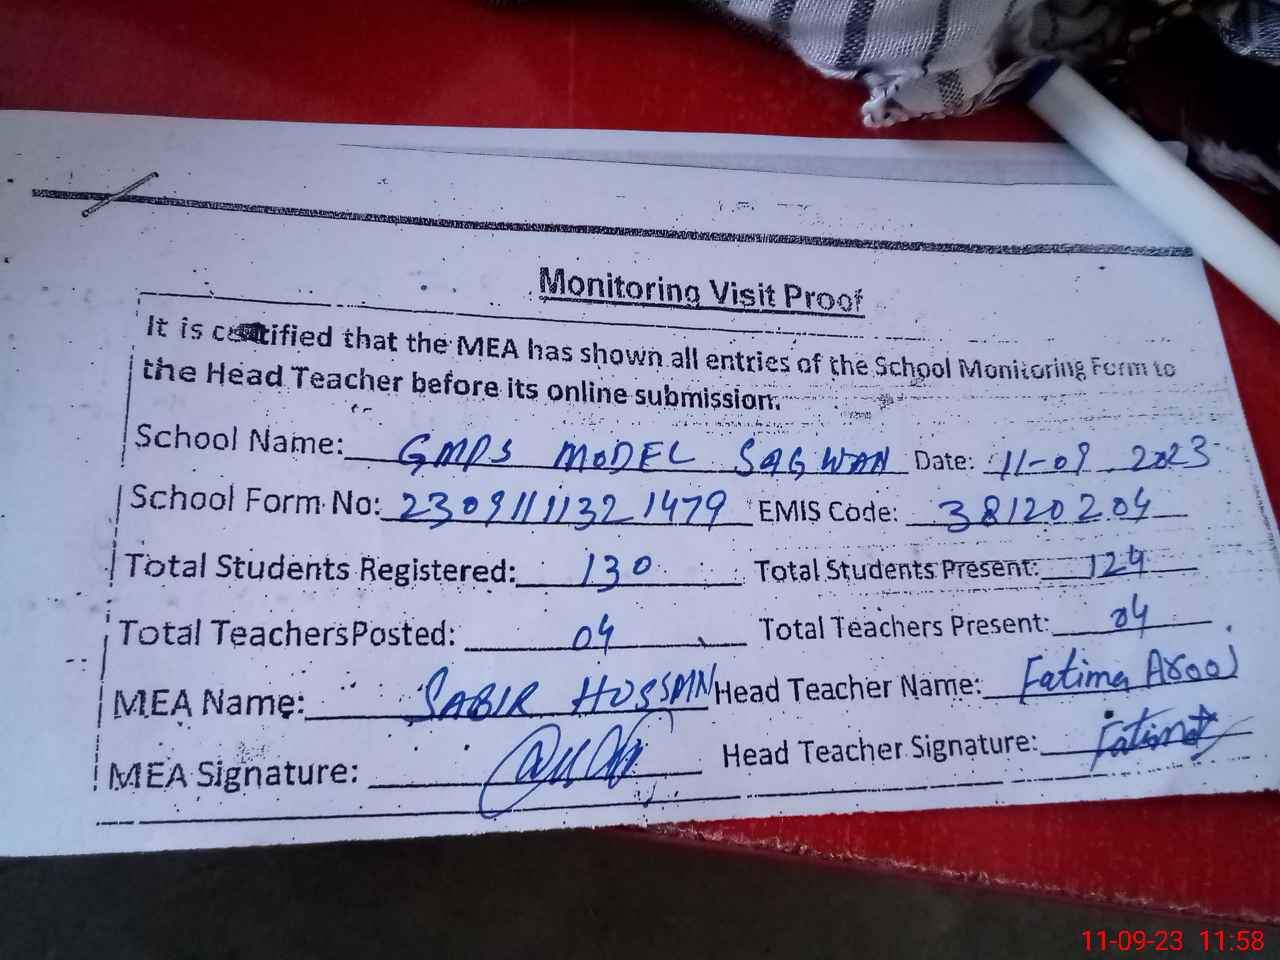 Monitoring Visit Proof
It is certified that the MEA has shown all entries of the School Monitoring Form to
the Head Teacher before its online submission.
School Name: GMPS MODEL SAGWAN Date: 11-09.2023
School Form No: 2309111132 1479 EMIS Code: 38120204
Total Students Registered: 130 Total Students Present: 124
Total Teachers Posted: 04 Total Teachers Present: 04
MEA Name: SABIR HUSSAIN Head Teacher Name: Fatima Arooj
MEA Signature: Head Teacher Signature: Fatima
11-09-23 11:58